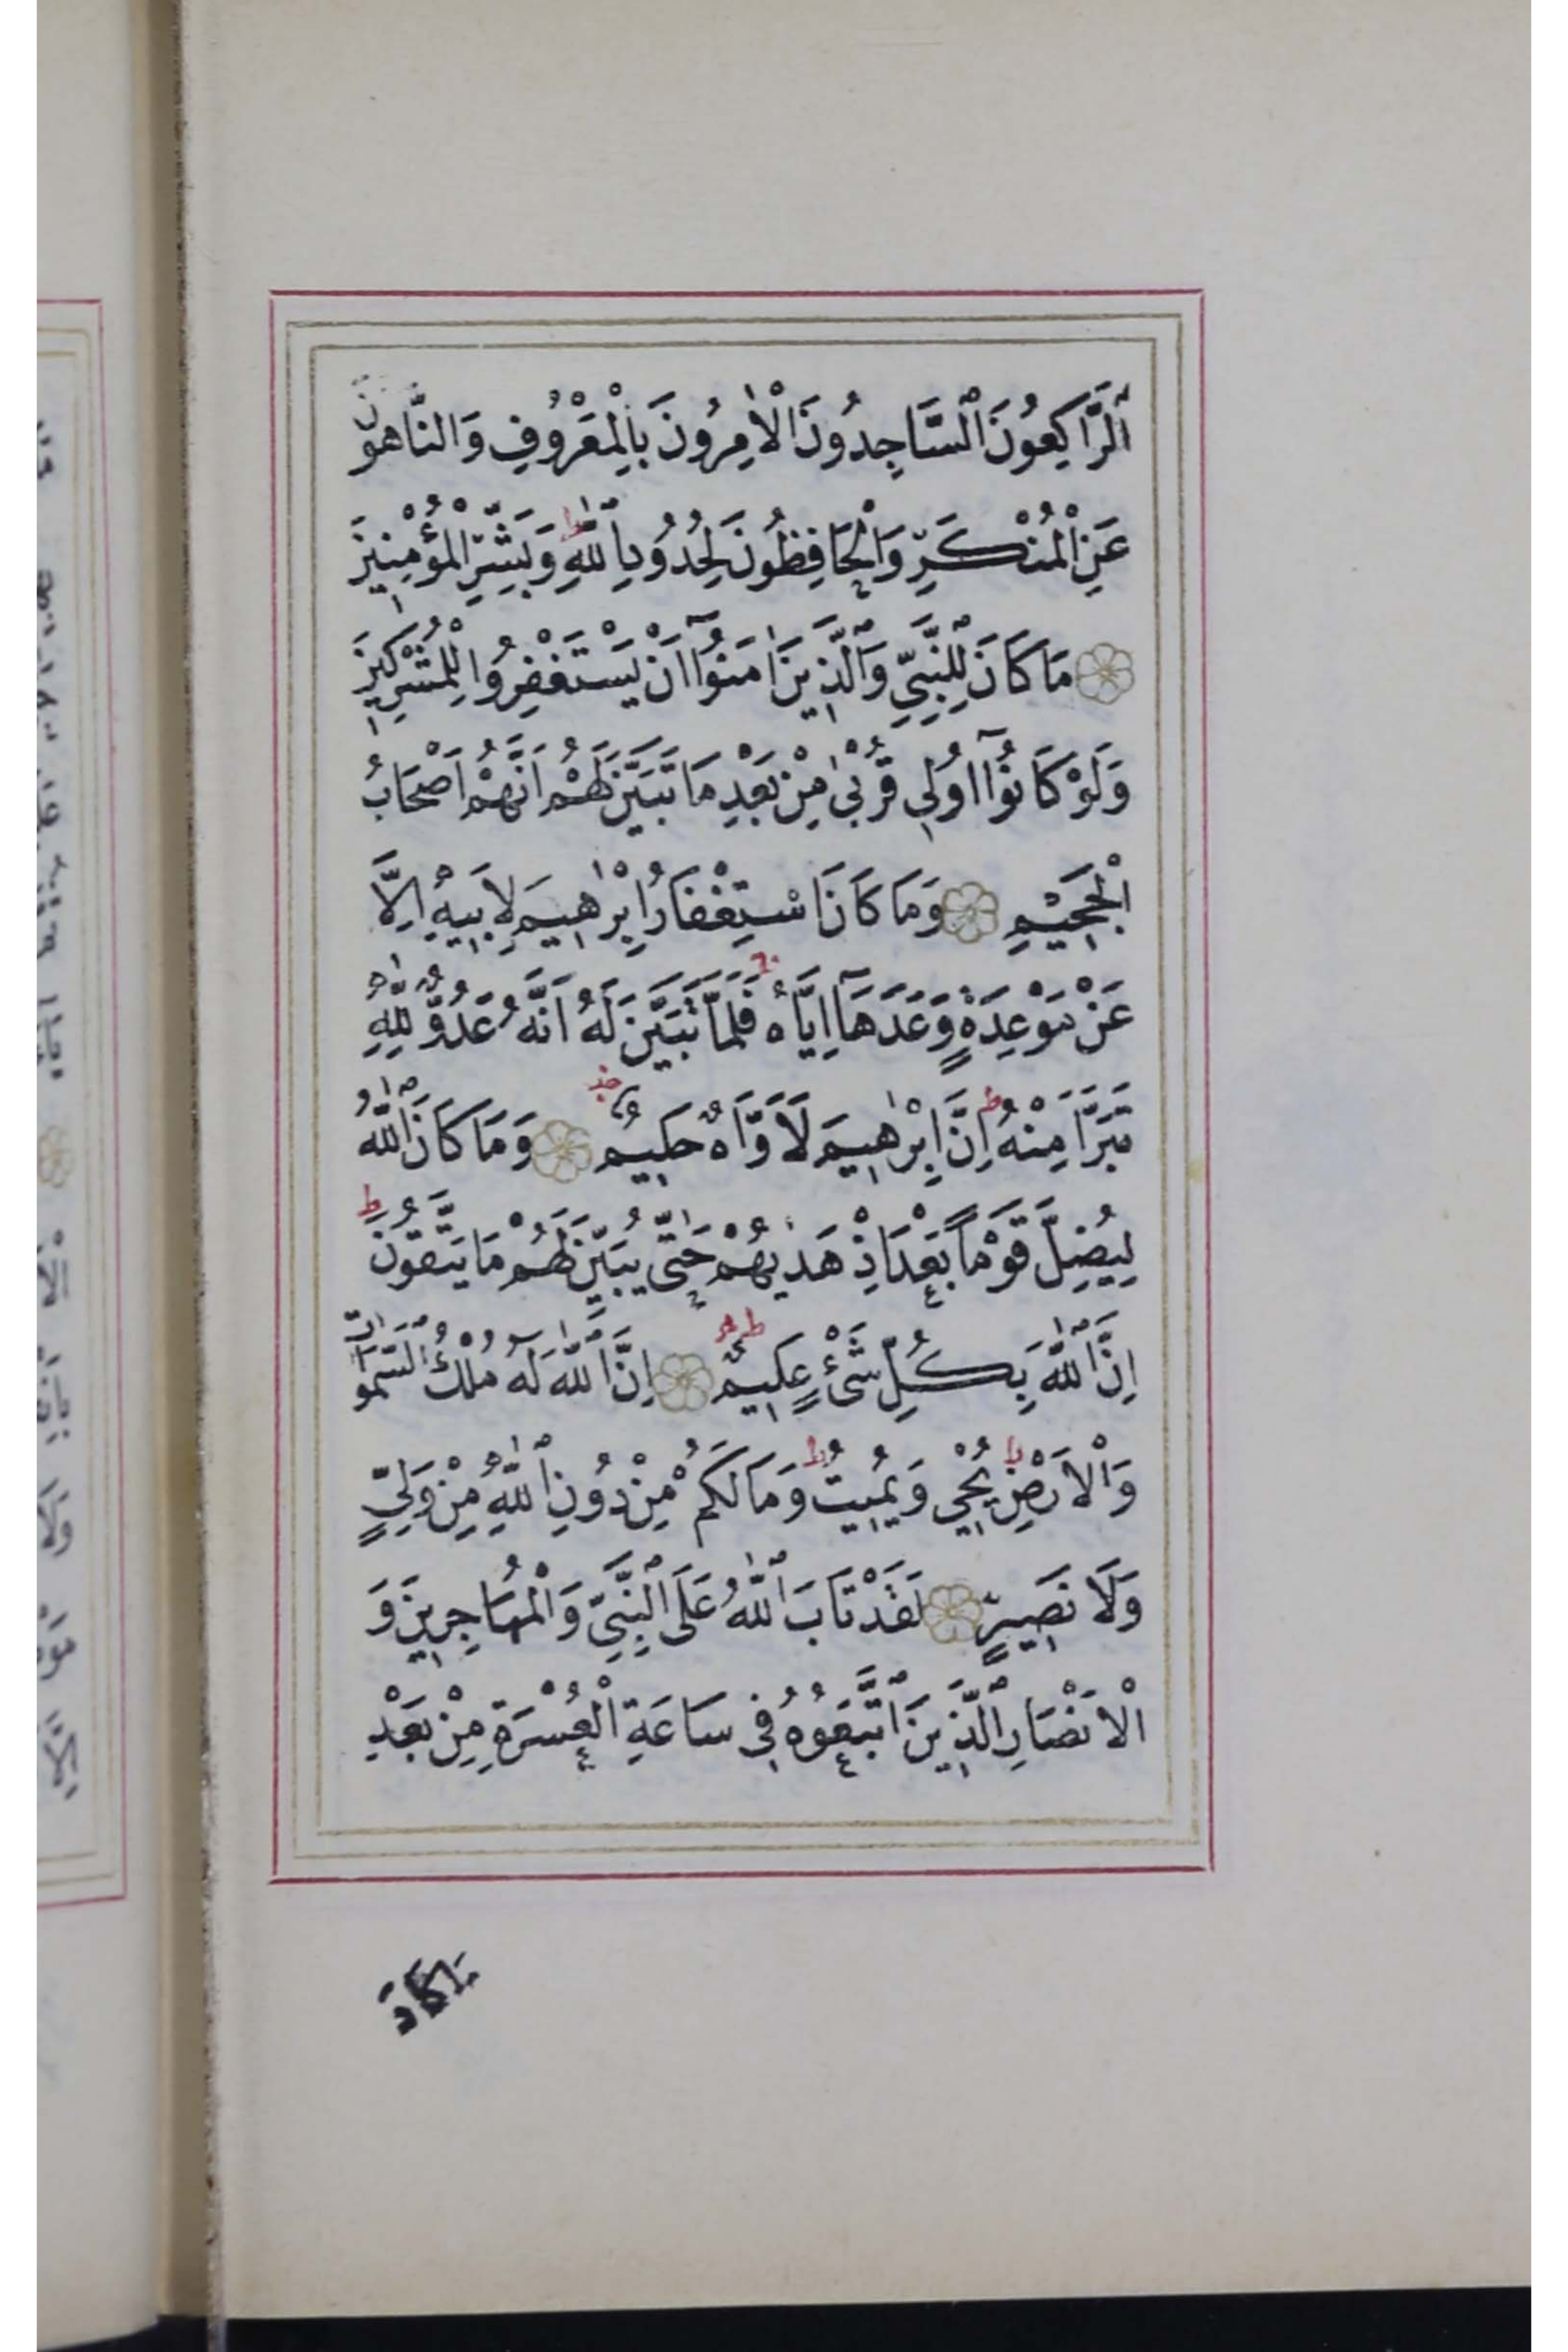 اَلرَّاكِعُونَ السَّاجِدُونَ الْاٰمِرُونَ بِالْمَعْرُوفِ وَالنَّاهُونَ
عَنِ الْمُنْكَرِ وَالْحَافِظُونَ لِحُدُودِ اللّٰهِ ط وَبَشِّرِ الْمُؤْمِنِينَ
مَا كَانَ لِلنَّبِيِّ وَالَّذِينَ اٰمَنُٓوا اَنْ يَسْتَغْفِرُوا لِلْمُشْرِكِينَ
وَلَوْ كَانُٓوا اُولِي قُرْبٰى مِنْ بَعْدِ مَا تَبَيَّنَ لَهُمْ اَنَّهُمْ اَصْحَابُ
الْجَحِيمِ وَمَا كَانَ اسْتِغْفَارُ اِبْرٰهِيمَ لِاَبِيهِ اِلَّا
عَنْ مَوْعِدَةٍ وَعَدَهَٓا اِيَّاهُ فَلَمَّا تَبَيَّنَ لَهُ اَنَّهُ عَدُوٌّ لِلّٰهِ
تَبَرَّاَ مِنْهُ ط اِنَّ اِبْرٰهِيمَ لَاَوَّاهٌ حَلِيمٌ وَمَا كَانَ اللّٰهُ
لِيُضِلَّ قَوْمًا بَعْدَ اِذْ هَدٰيهُمْ حَتّٰى يُبَيِّنَ لَهُمْ مَا يَتَّقُونَ ط
اِنَّ اللّٰهَ بِكُلِّ شَيْءٍ عَلِيمٌ اِنَّ اللّٰهَ لَهُ مُلْكُ السَّمٰوَاتِ
وَالْاَرْضِ ط يُحْيِي وَيُمِيتُ ط وَمَا لَكُمْ مِنْ دُونِ اللّٰهِ مِنْ وَلِيٍّ
وَلَا نَصِيرٍ لَقَدْ تَابَ اللّٰهُ عَلَى النَّبِيِّ وَالْمُهَاجِرِينَ وَ
الْاَنْصَارِ الَّذِينَ اتَّبَعُوهُ فِي سَاعَةِ الْعُسْرَةِ مِنْ بَعْدِ
مَا كَادَ